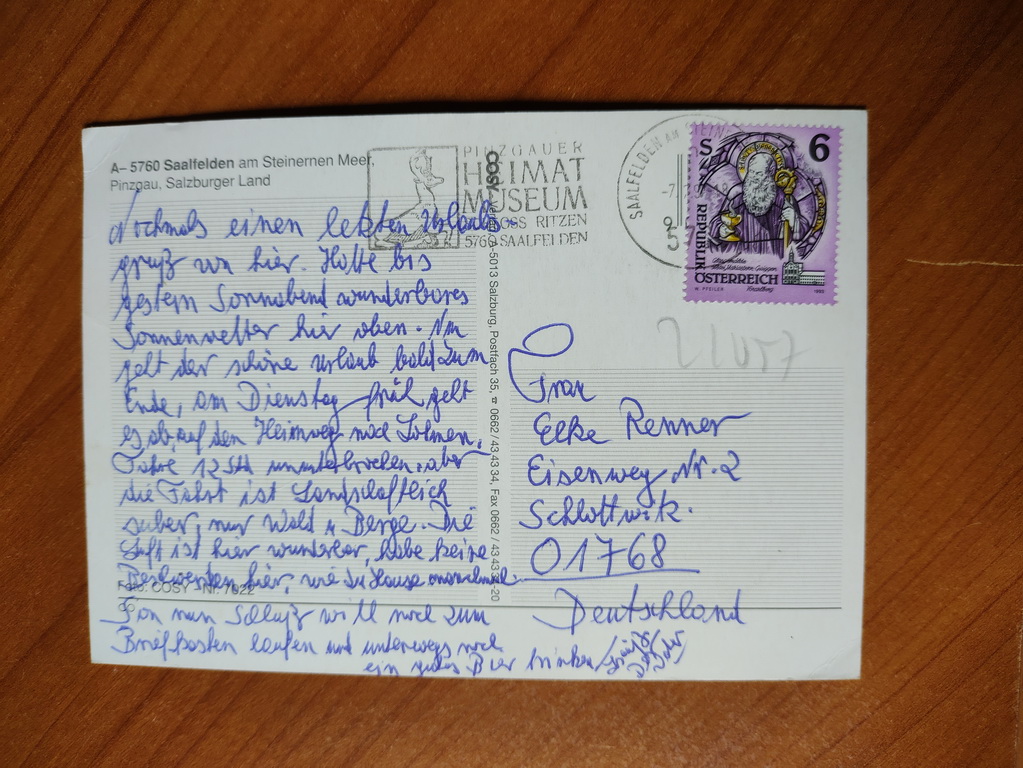 A– 5760 Saalfelden am Steinernen Meer,
Pinzgau, Salzburger Land
PINZGAUER
HEIMAT
MUSEUM
SCHLOSS RITZEN
5760 SAALFELDEN
SAALFELDEN AM STEIN
S 6
REPUBLIK
ÖSTERREICH
Nochmals einen letzten Urlaubs
gruß von hier. Hatte bis
gestern Sonnabend wunderbares
Sonnenwetter hier oben. Nun
geht der schöne Urlaub bald zum
Ende, am Dienstag früh geht
es ab auf den Heimweg nach Lohmen.
Fahre 12 Std ununterbrochen. aber
die Fahrt ist Landschaftlich
super, nur Wald u Berge. Die
Luft ist hier wunderbar, habe keine
Beschwerden hier, wie zu Hause manchmal
Foto: COSY Nr. 7022
nun Schluß will noch zum
Briefkasten laufen und unterwegs noch
ein gutes Bier trinken
COSY-Verlag, A-5013 Salzburg, Postfach 35, ☎ 0662 / 43 43 34, Fax 0662 / 43 43 34-20
Frau
Elke Renner
Eisenweg Nr. 2
Schlottwitz.
01768
Deutschland